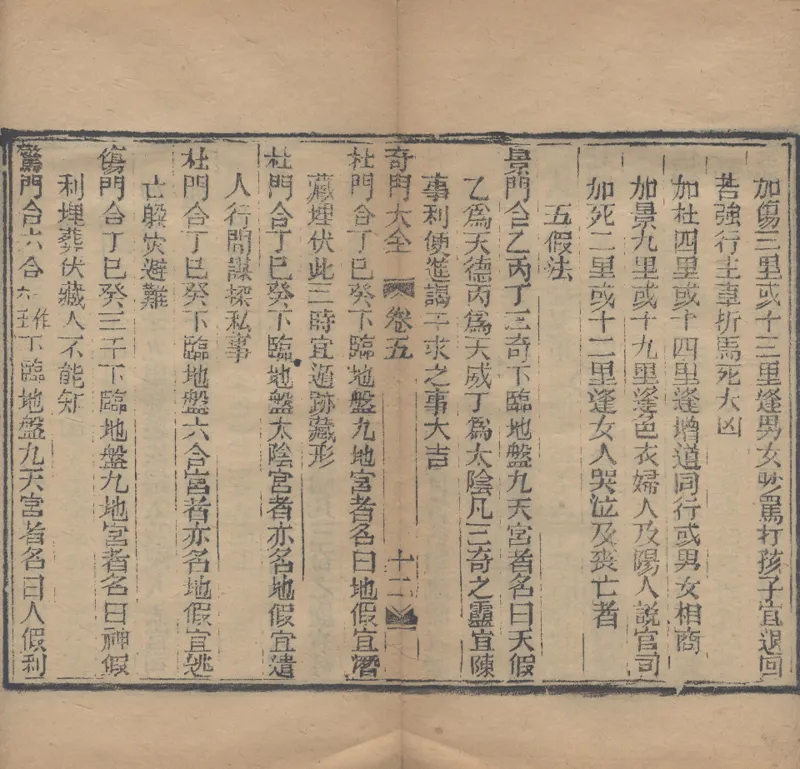 加傷三里或十三里逢男女吵罵打孩子宜退回
若強行主車折馬死大凶
加杜四里或十四里逢增道同行或男女相商
加景九里或十九里逢色衣婦人及陽人說官司
加死二里或十二里逢女人哭泣及喪亡者
五假法
景門合乙丙丁三奇下臨地盤九天宮者名曰天假
乙爲天德丙爲天威丁爲太陰凡三奇之靈宜陳
事利便進謁干求之事大吉
奇門大全 卷五 十二
杜門合丁巳癸下臨地盤九地宮者名曰地假宜潛
藏埋伏此三時宜遁跡藏形
杜門合丁巳癸下臨地盤太陰宮者亦名地假宜遣
人行間謀探私事
杜門合丁巳癸下臨地盤六合宮者亦名地假宜逃
亡躲伏避難
傷門合丁巳癸三干下臨地盤九地宮者名曰神假
利埋葬伏藏人不能知
驚門合六合作六壬下臨地盤九天宮者名曰人假利